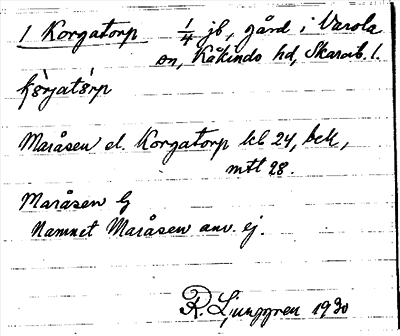 1 Korgatorp 1/4 jb, gård i Varola
sn, Kåkinds hd, Skarab. l.
kòrjatòrp
Maråsen el. Korgatorp kb 24, bell,
mtl 28.
Maråsen G
Namnet Maråsen anv. ej.
R. Ljunggren 1930